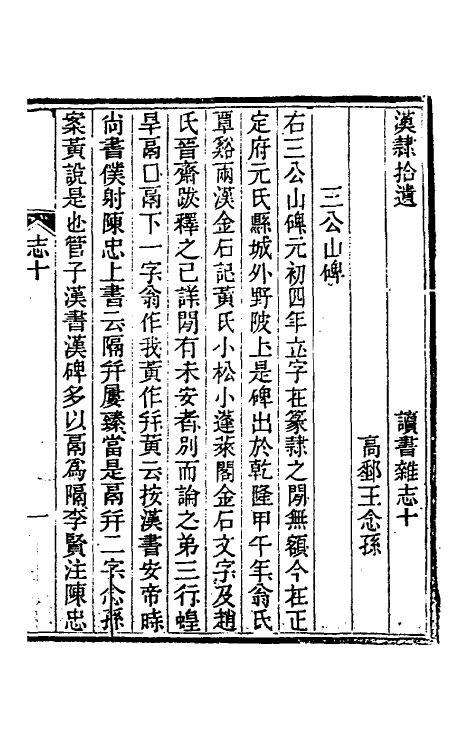 漢隸拾遺　讀書雜志十
高郵王念孫
三公山碑
右三公山碑元初四年立字在篆隸之閒無額今在正
定府元氏縣城外野陂上是碑出於乾隆甲午年翁氏
覃谿兩漢金石記黃氏小松小蓬萊閣金石文字及趙
氏晉齋跋釋之已詳閒有未安者別而論之弟三行蝗
旱鬲囗鬲下一字翁作我黃作幷黃云按漢書安帝時
尙書僕射陳忠上書云隔幷屢臻當是鬲幷二字念孫
案黃說是也管子漢書漢碑多以鬲爲隔李賢注陳忠
志十
一